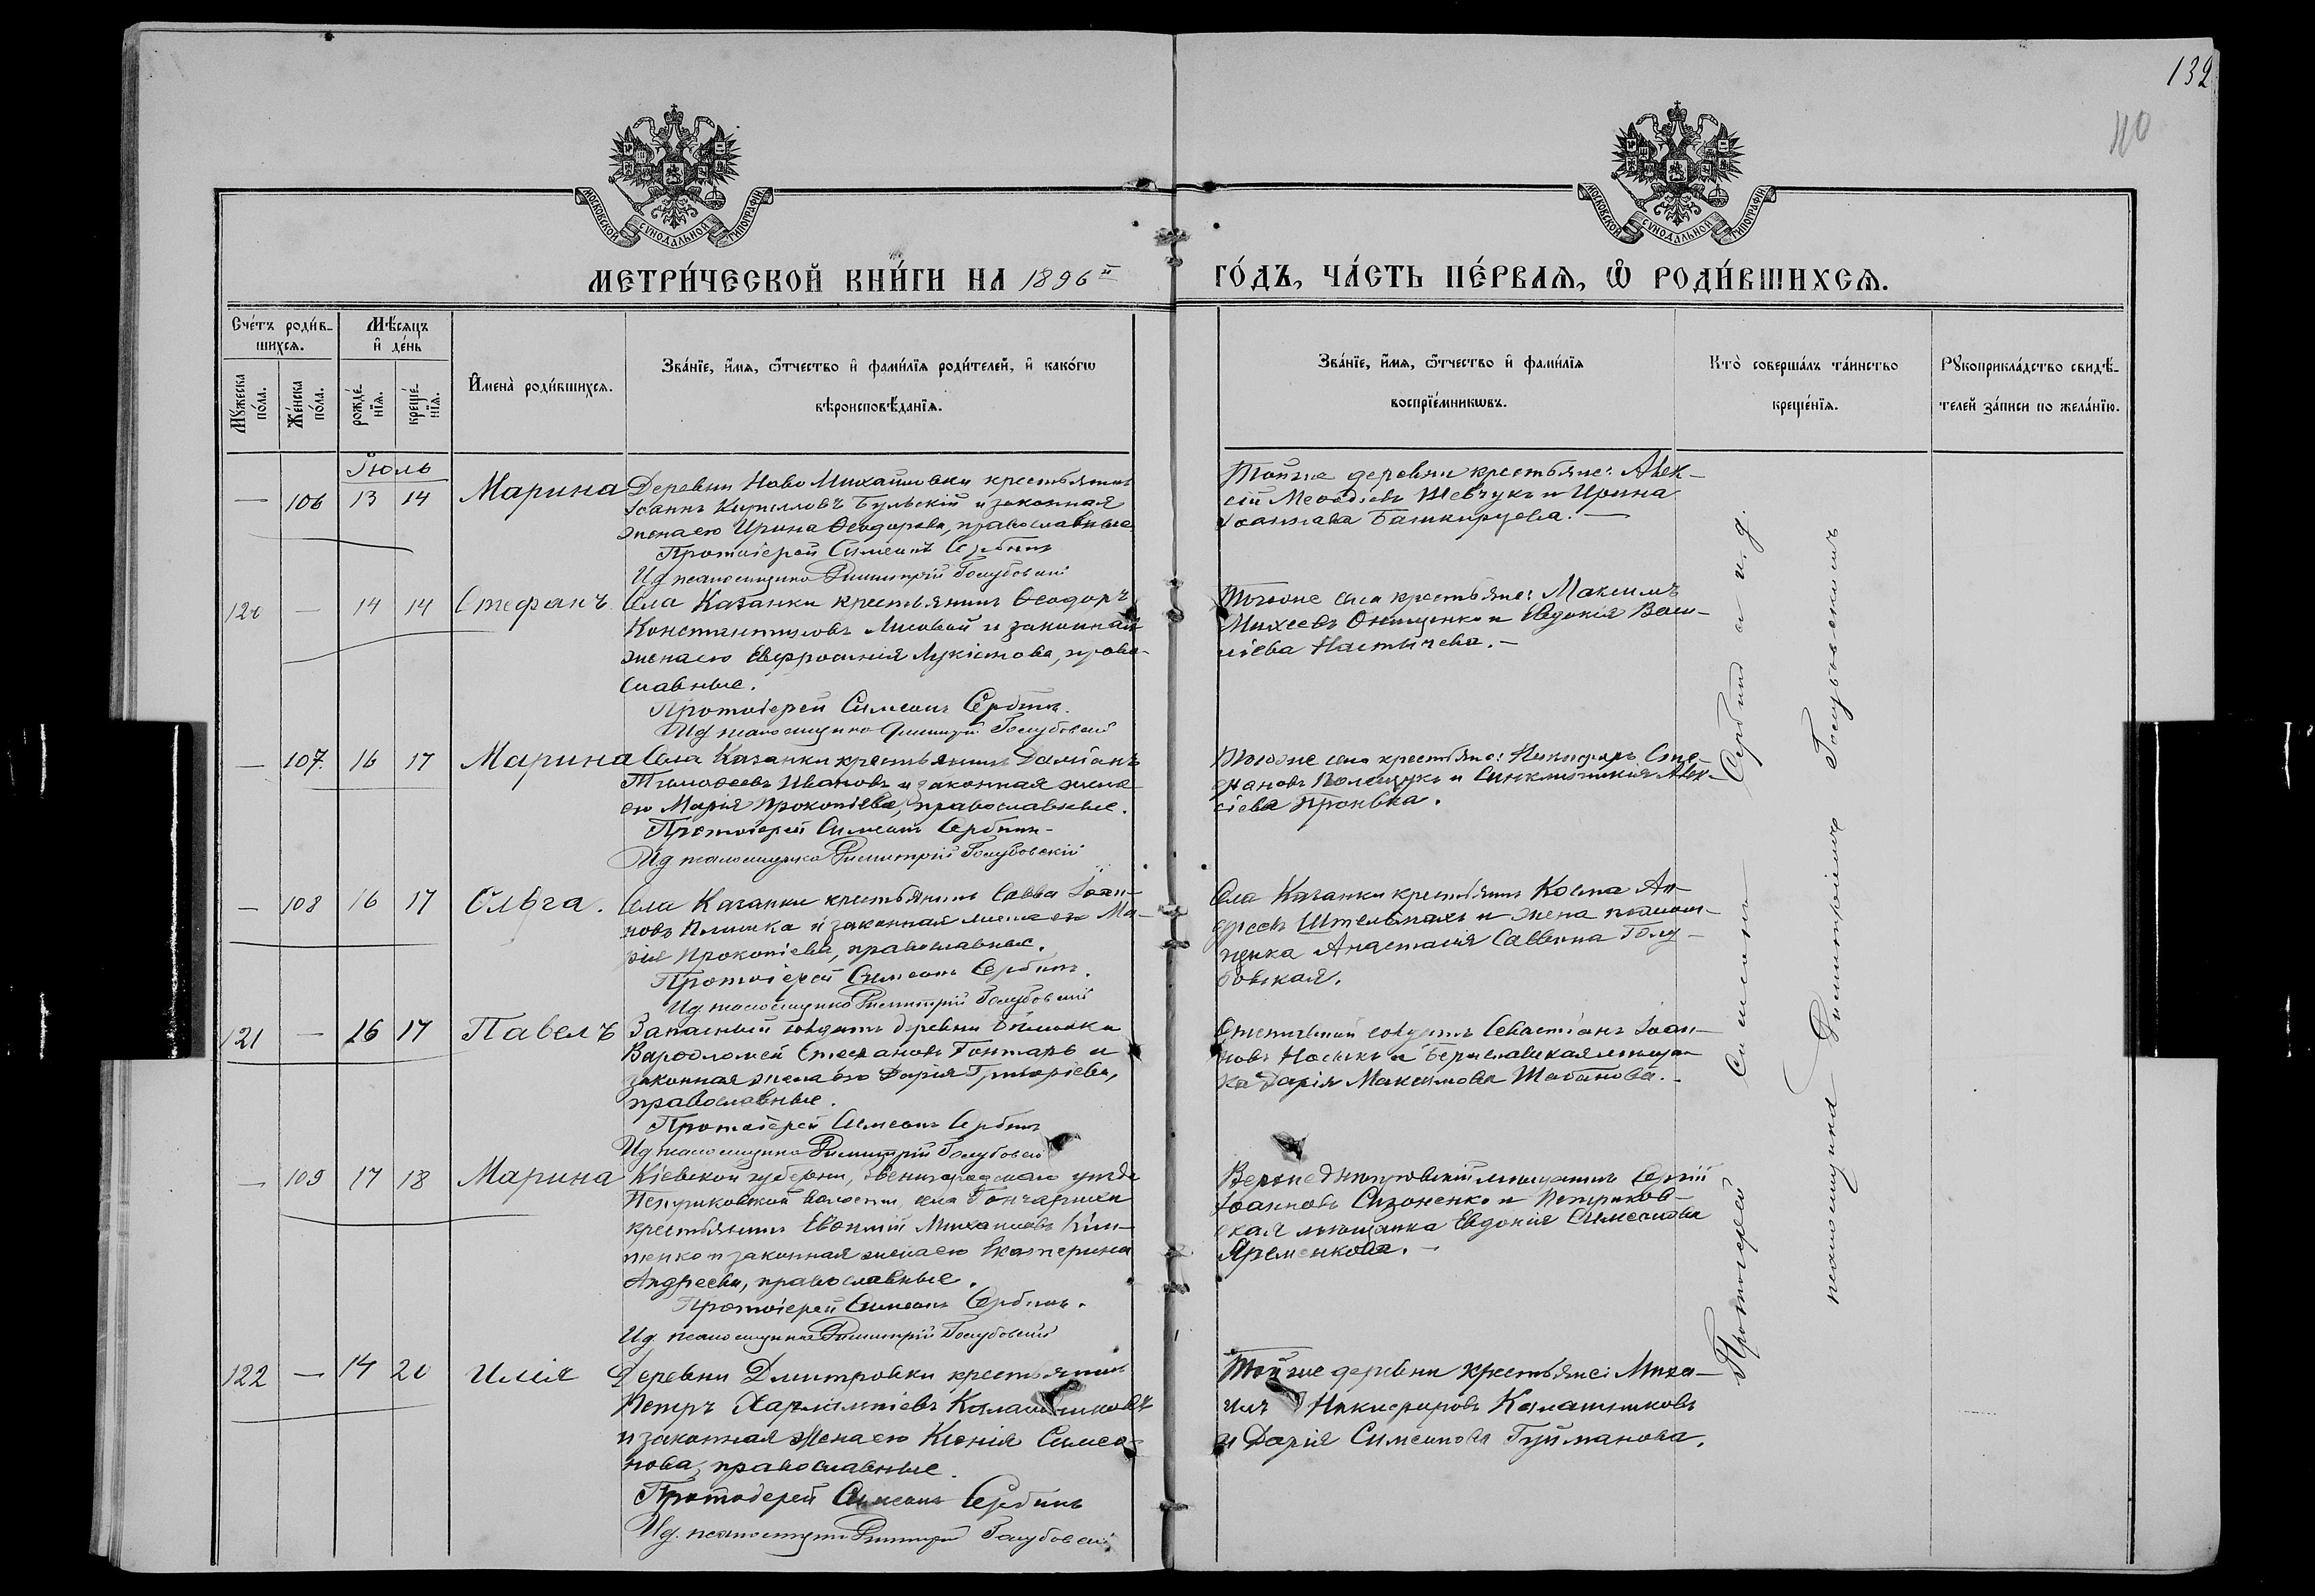 132
110
МОСКОВСКОЙ СѴНОДАЛЬНОЙ ТИПОГРАФІИ
МОСКОВСКОЙ СѴНОДАЛЬНОЙ ТИПОГРАФІИ
МЕТРИ́ЧЕСКОЙ КНИ́ГИ НА 1896й ГО́ДЪ, ЧА́СТЬ ПЕ́РВАѦ, Ѽ РОДИ́ВШИХСѦ.
Сче́тъ роди́в-
шихсѧ.
Мꙋжеска по́ла.
Же́нска по́ла.
Мѣ́сяцъ
и де́нь
рожде́-
нїѧ.
креще́-
нїѧ.
Имена̀ роди́вшихсѧ.
Зва́нїе, и́мѧ, ѻ́тчество и фами́лїѧ роди́телей, и како́гѡ
вѣроисповѣ́данїѧ.
Зва́нїе, и́мѧ, ѻ́тчество и фами́лїѧ
воспрїе́мникѡвъ.
Кто̀ соверша́лъ та́инство
креще́нїѧ.
Рꙋкоприкла́дство свидѣ́-
телей за́писи по жела́нїю.
Іюль
— 106 13 14 Марина
Деревни Ново Михайловки крестьянинъ
Іоаннъ Кирилловъ Бульскій и законная
жена его Ирина Ѳеодорова, православные
Протоіерей Симеонъ Сербинъ
И д псаломщика Димитрій Голубовскій
Тойже деревни крестьяне: Алек-
сій Меѳодіевъ Шевчукъ и Ирина
Іоаннова Башкирцева. —
120 — 14 14 Стефанъ
Села Казанки крестьянинъ Ѳеодоръ
Константиновъ Лисовой и законная
жена его Евфросинія Лукіанова, право-
славные.
Протоіерей Симеонъ Сербинъ.
И д псаломщика Димитрій Голубовскій
Тогоже села крестьяне: Максимъ
Михеевъ Онищенко и Евдокія Васи-
ліева . —
— 107. 16 17 Марина
Села Казанки крестьянинъ Даміанъ
Тимоѳеевъ Ивановъ и законная жена
его Марія Прокопіева, православные.
Протоіерей Симеонъ Сербинъ
И д псаломщика Димитрій Голубовскій
Тогоже села крестьяне: Никифоръ Сте-
фановъ Полещукъ и Синклитикія Алек-
сіева Пронька.
— 108 16 17 Ольга.
Села Казанки крестьянинъ Савва Іоан-
новъ и законная жена его Ма-
рія Прокопіева, православные.
Протоіерей Симеонъ Сербинъ.
И д псаломщика Димитрій Голубовскій
Села Казанки крестьянинъ Косма Ан-
дреевъ Штельмахъ и жена псалом-
щика Анастасія Саввина Голу-
бовская.
121 — 16 17 Павелъ
Запасный солдатъ деревни
Варѳоломей Стефановъ Гонтарь и
законная жена его Дарія Григоріева,
православные.
Протоіерей Симеонъ Сербинъ
И д псаломщика Димитрій Голубовскій
солдатъ Севастіанъ Іоан-
новъ Носыкъ и Бериславская мещан-
ка Дарія Максимова Шабанова. —
— 109 17 18 Марина
Кіевской губерніи, Звенигородскаго уѣзда
волости, села Гончарихи
крестьянинъ Евѳимій Михаиловъ Кли-
менко и законная жена его Екатерина
Андреева, православные.
Протоіерей Симеонъ Сербинъ.
И д. псаломщика Димитрій Голубовскій
Верхнеднѣпровскій мещанинъ Сергій
Іоанновъ Сизоненко и Петриков-
ская мещанка Евдокія Симеонова
Яременкова. —
122 — 14 20 Илія
Деревни Дмитровки крестьянинъ
Петръ Харлампіевъ Калашниковъ
и законная жена его Ксенія Симео-
нова, православные.
Протоіерей Симеонъ Сербинъ
И д. псаломщика Димитрій Голубовскій
Тойже деревни крестьяне: Миха-
илъ Никифоровъ Калашниковъ
и Дарія Симеонова Гуйманова.
Протоіерей Симеонъ Сербинъ и и. д.
псаломщика Димитрій Голубовскій